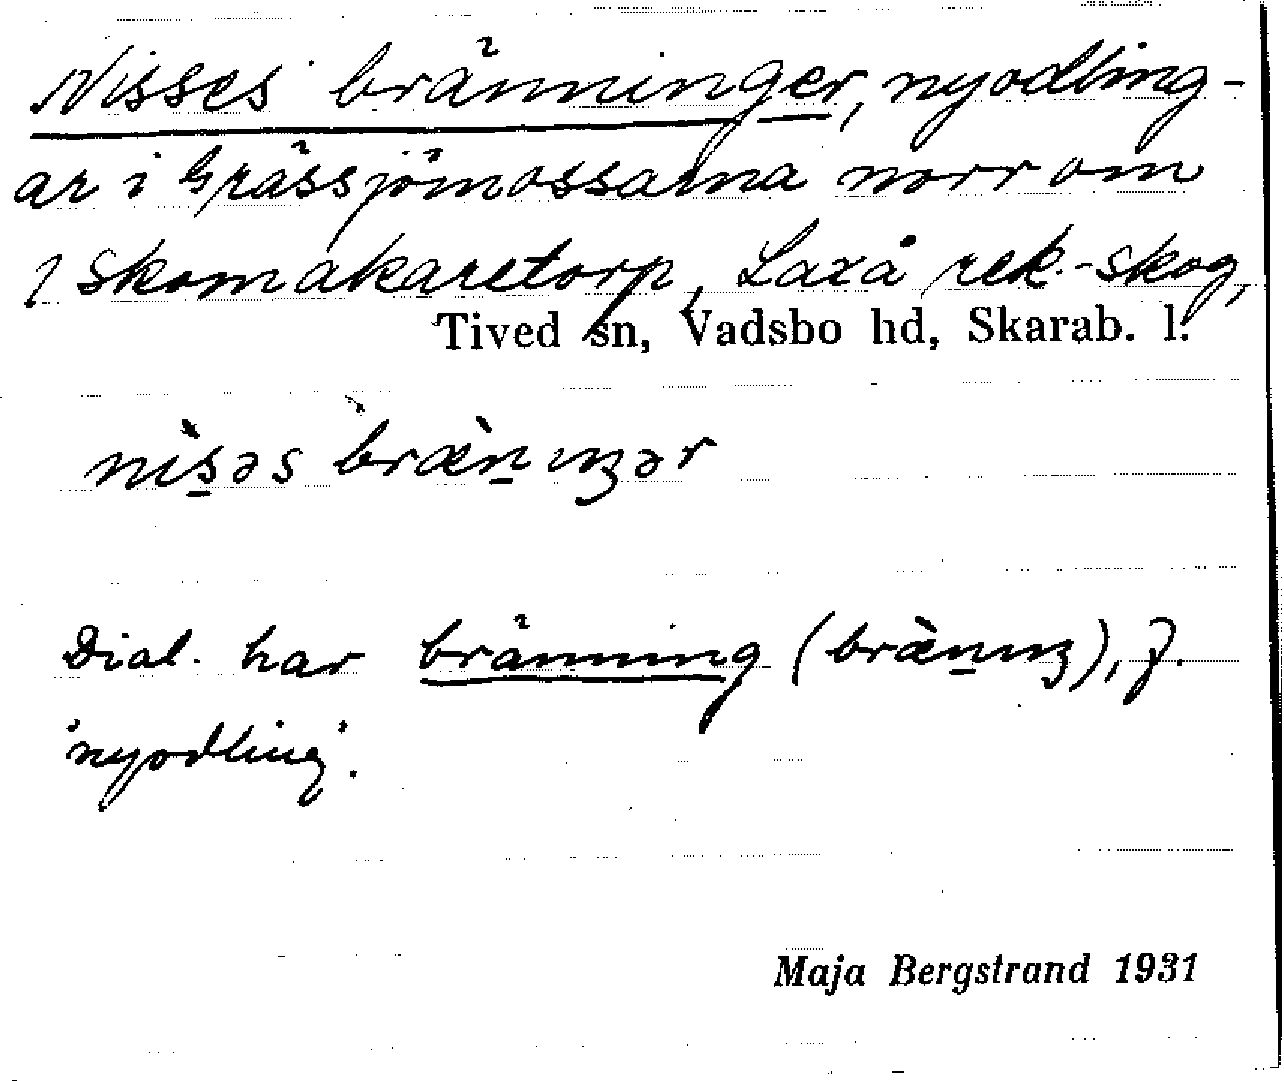 Nisses bränninger, nyodling-
ar i Grässjömossarna norr om
1 Skomakaretorp, Laxå rek.-skog,
Tived sn, Vadsbo hd, Skarab. l.
nìs̲əs bræ̀n̲ıŋər
Dial. har bränning (bræ̀n̲ıŋ), f.
'nyodling'.
Maja Bergstrand 1931